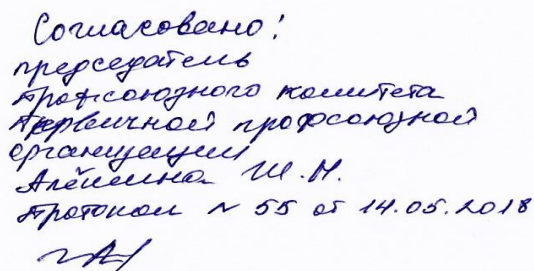 Согласовано!
председатель
профсоюзного комитета
первичной профсоюзной
организации
Алёшина Ш. М.
Протокол № 55 от 14.05.2018